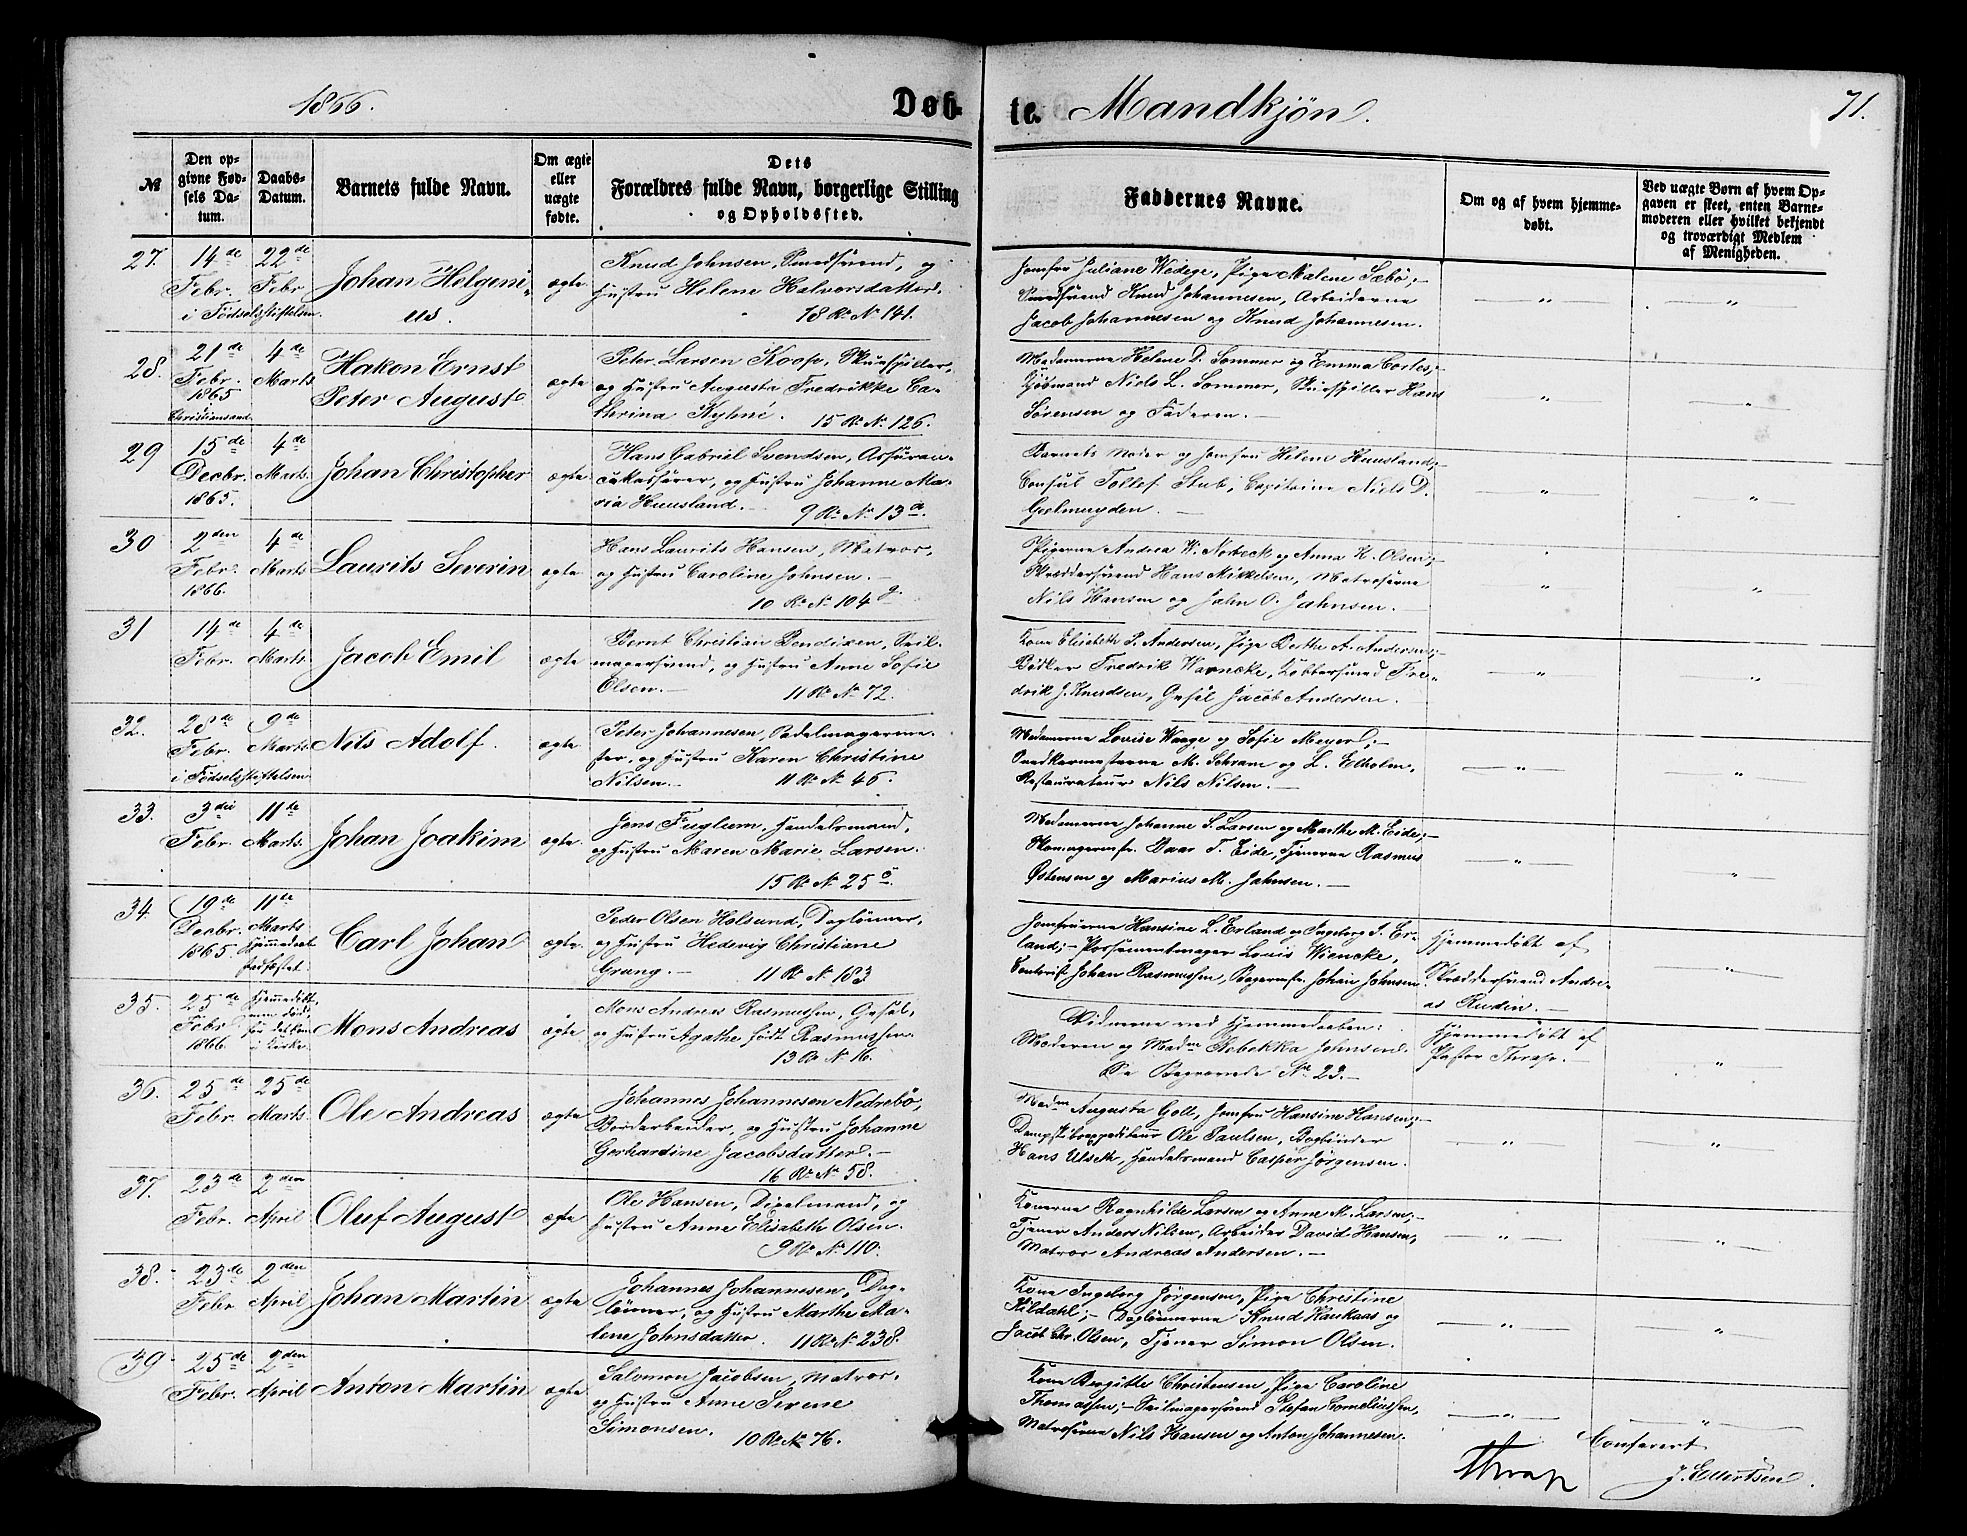 1866.
Døb-
te.
Mandkjøn.
71.
№
Den op-
givne Fød-
sels Da-
tum.
Daabs-
Datum.
Barnets fulde Navn.
Om ægte
eller
uægte
fødte.
Dets
Forældres fulde Navn, borgerlige Stilling
og Opholdssted.
Faddernes Navne.
Om og af hvem hjemme-
døbt.
Ved uægte Børn af hvem Op-
gaven er skeet, enten Barne-
moderen eller hvilket bekjendt
og troværdigt Medlem
af Menigheden.
27.
14de
Febr.
i Fødselsstiftelsen.
22de
Febr
Johan Helgeni-
us.
ægte
Knud Johnsen, Smedsvend, og
Hustru Helene Halvorsdatter.
18 R. N. 141.
Jomfru Juliane Wedege, Pige Malene Sæbö;-
Smedsvend Knud Johannesen, Arbeiderne
Jacob Johannesen og Knud Johannesen.
28.
21de
Febr.
1865
Christiansand
4de
Marts
Hakon Ernst
Peter August
ægte
Peter Larsen Koop, Skuespiller,
og Hustru Augusta Fredrikke Ca-
thrina Kyhné. 15 R. N. 126.
Madamerne Helene D. Sommer og Emma Cortes;-
Sjømand Niels L. Sommer, Skuespiller Hans
Sørensen og Faderen.-
29
15de
Decbr.
1865.
4de
Marts.
Johan Christopher
ægte
Hans Gabriel Svendsen, Assuran-
cekasserer, og Hustru Johanne Ma-
ria Huusland. 9 R. N. 13a.
Barnets Moder og Jomfru Helene Huusland;-
Consul Tollef Stub, Capitaine Niels D.
Gjelmuyden.-
30
2den
Febr.
1866.
4de
Marts
Laurits Severin
ægte
Hans Laurits Hansen, Matros,
og Hustru Caroline Johnsen.-
10 R. N. 104 g.
Pigerne Andrea W. Norbeck og Anna K. Olsen;-
Skræddersvend Hans Mikkelsen, Matroserne
Nils Hansen og John O. Johnsen.-
31
14de
Febr.
4de
Marts.
Jacob Emil
ægte
Bernt Christian Bendixen, Seil-
magersvend, og Hustru Anne Sofie
Olsen.- 11 R. N. 72.
Kone Elisabeth P. Andersen, Pige Berthe A. Andersen;-
Bødker Fredrik Warncke, Kobbersmed Fre-
drik J. Knudsen, Gesel Jacob Andersen.
32.
28de
Febr.
i Fødselsstiftelsen
9de
Marts.
Nils Adolf.
ægte
Peter Johannesen, Sadelmagerme-
ster, og Hustru Karen Christine
Nilsen.- 11 R. N. 46.
Madamerne Lovise Waage og Sofie Meyer;-
Snedkermesterne M. Schram og L. Elholm,
Restaurateur Nils Nilsen.-
33.
3die
Febr.
11te
Marts.
Johan Joakim
ægte
Jens Fuglum, Handelsmand,
og Hustru Maren Marie Larsen.
15 R. N. 25 c.
Madamerne Johanne S. Larsen og Marthe M. Eide;-
Skomagermstr. Daar T. Eide, Tjenerne Rasmus
Østensen og Marius M. Johnsen.-
34
19de
Decbr.
1865.
11te
Marts
Hjemmedaab
stadfæstet.
Carl Johan
ægte
Peder Olsen Holsund, Dagløner,
og Hustru Hedevig Christiane
Grung.- 11 R. N. 183
Jomfruerne Hansine L. Erland og Ingeborg S. Er-
land;- Possementmager Louis Wiencke,
Contorist Johan Rasmussen, Bagermstr. Johan Johnsen
Hjemmedøbt af
Skræddersvend Andre-
as Rudin.-
35.
25de
Febr
1866.
Hjemmedøbt,
men død
før Daaben
i Kirke.
Mons Andreas
ægte
Mons Andreas Rasmussen, Gesel,
og Hustru Agathe født Rasmussen.
13 R. N. 16.
Vidnerne ved Hjemmedaaben:
Moderen og Madme Rebekka Johnsen.
Se Begravede No. 23.-
Hjemmedøbt af
Pastor Thrap.
36.
25de
Febr.
25de
Marts.
Ole Andreas
ægte
Johannes Johannesen Nedrebö,
Bordarbeider, og Hustru Johanne
Gerhardine Jacobsdatter.-
16 R. N. 58.
Madm Augusta Goll, Jomfru Hansine Hansen;-
Dampskibsexpediteur Ole Paulsen, Bogbinder
Hans Ulseth, Handelsmand Casper Jørgensen.
37.
23de
Febr.
2den
April
Oluf August
ægte
Ole Hansen, Dixelmand, og
Hustru Anne Elisabeth Olsen.
9 R. N. 110.
Konerne Ragnhilde Larsen og Anne M. Larsen;-
Tjener Anders Nilsen, Arbeider David Hansen,
Matros Andreas Andersen.-
38.
23de
Febr
2den
April
Johan Martin
ægte
Johannes Johannesen, Dag-
lønner, og Hustru Marthe Ma-
lene Johnsdatter. 11 R. N. 238.
Kone Ingeborg Jørgensen, Pige Christine
Kildahl;- Daglønnerne Knud Haukaas og
Jacob Chr. Olsen, Tjener Simon Olsen.
39
25de
Febr.
2den
April
Anton Martin
ægte
Salomon Jacobsen, Matros,
og Hustru Anne Serene
Simonsen. 10 R. N. 76.
Kone Bergitte Christensen, Pige Caroline
Thomassen;- Seilmagersvend Stefan Corneliussen,
Matroserne Nils Hansen og Anton Johannesen.
Thrap
Confereret
J. Ellertsen.